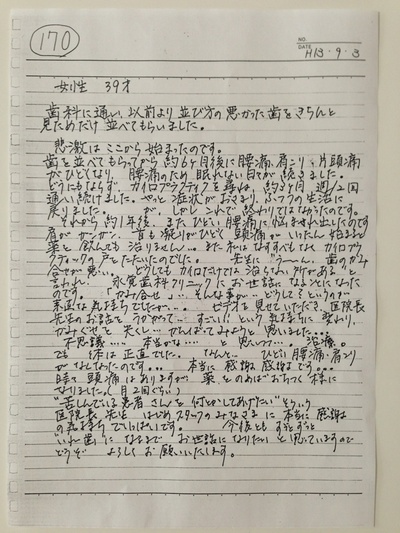 170
NO.
DATE H13・9・3
女性 39才
歯科に通い、以前より並び方の悪かった歯をきちんと
見ためだけ並べてもらいました。
悲激はここから始まったのです。
歯を並べてもらってから約6ヶ月後に腰痛、肩こり、片頭痛
がひどくなり、腰痛のため眠れない日々が続きました。
どうにもならず、カイロプラクティクを尋ね、約3ヶ月 週/2回
通い続けました。やっと症状がおさまり、ふつうの生活に
戻りました。 が、しかしこれで終わりではなかったのです。
それから約1年後、またひどい腰痛に悩まされ出したのです
肩がガンガン、首も凝りがひどく、頭痛がいったん始まると
薬を飲んでも治りません… また私はなすすべもなくカイロプラ
クティックの戸をたたいたのでした。 先生に"うーん、歯のかみ
合せが悪い。どうしてもカイロだけでは治らない所がある"と
言われ、 歯科クリニックにお世話になることになった
のです。 "かみ合せ"… そんな事が… どうして?というのが
素直な気持ちでしたが…。 ビデオを見せていただき、医院長
先生のお話をうかがって"すごい!"という気持ちに変わり、
かみくせを失くし… がんばってみようと思いました…
不思議…… 本当かな…… と思いつつ…。治療。
でも 体は正直でした。 なんと… ひどい腰痛・肩こり
がなくなったのです… 本当に感謝感謝です…。
時々頭痛はありますが、薬をのめばおちつく様に
なりました。(月2回ぐらい)
"苦しんでいる患者さんを何とかしてあげたい"そういう
医院長先生 はじめスタッフのみなさまに本当に感謝
の気持ちでいっぱいです。 今後ともずっとずっと
"いれ歯"になるまでお世話になりたいと思っていますので
どうぞ よろしくお願いいたします。